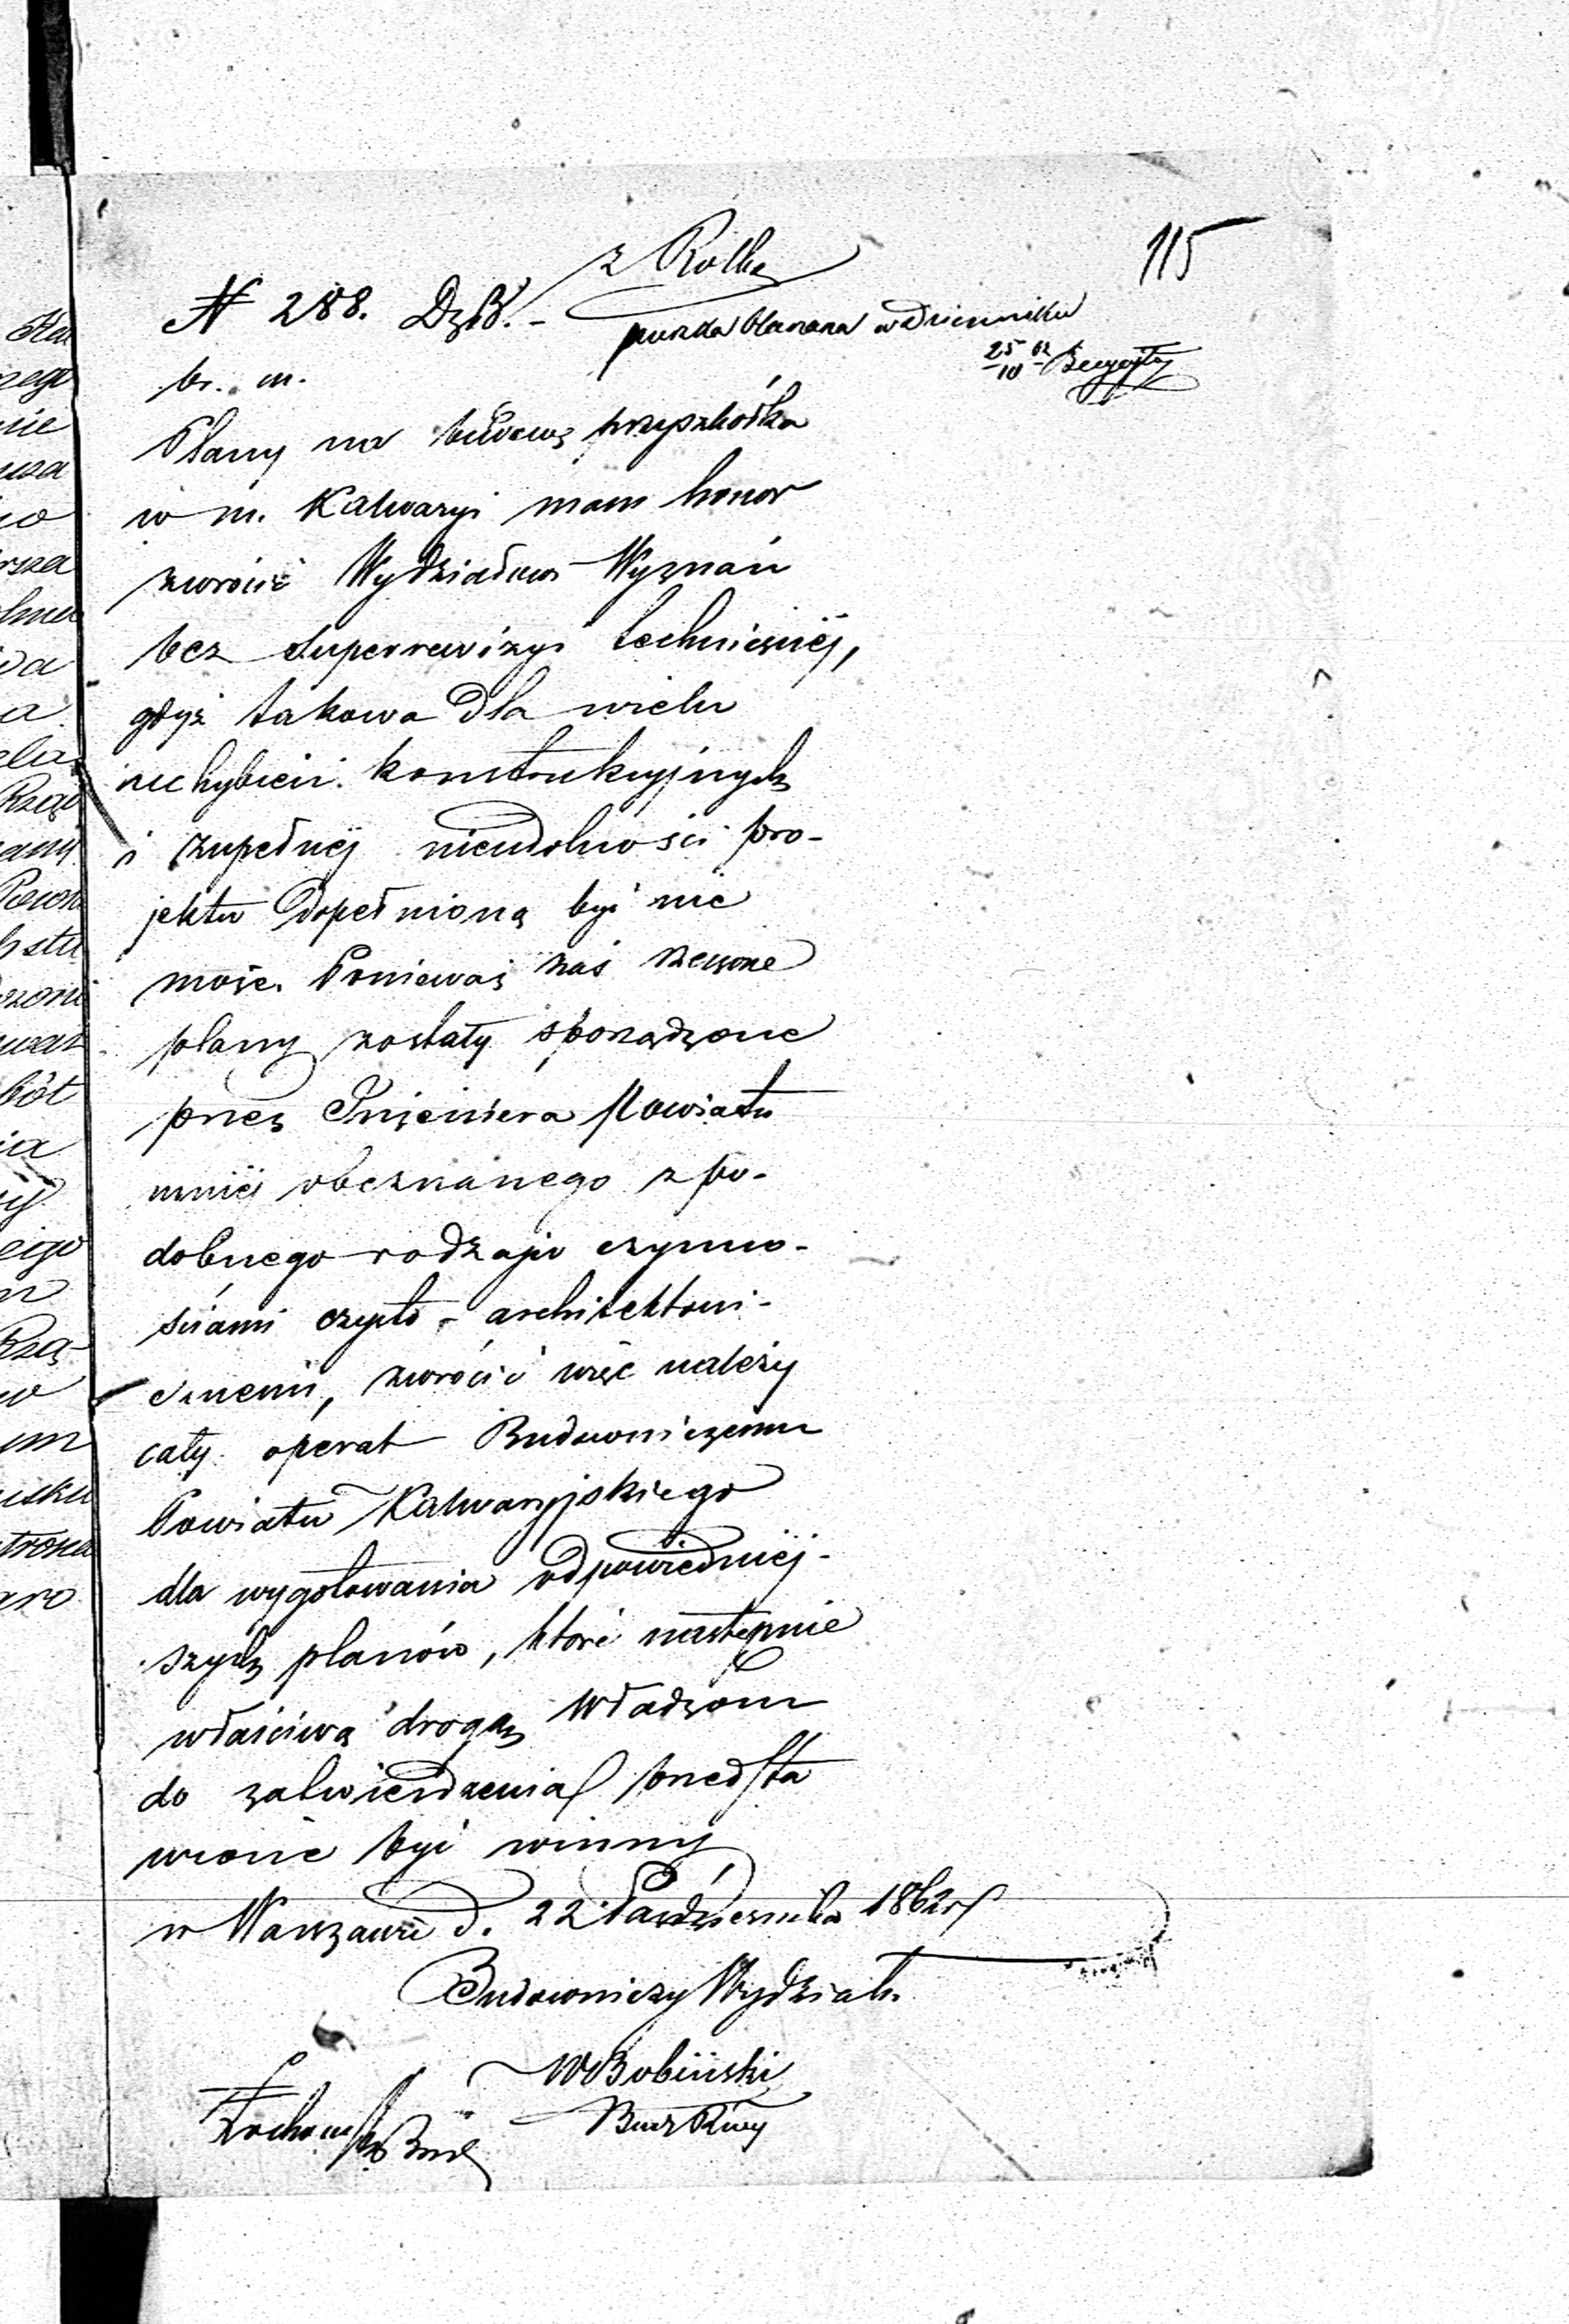 115
z Rolką
N 288. DzB. -
w Dzienniku
25/10 62
b. m.
Plany na budowę przyszkółka
w m. Kalwaryi mam honor
zwrócić Wydziałowi Wyznań
bez superrewizyi technicznéj,
gdyż takowa dla wielu
uchybień konstrukcyjnych
i zupełnéj nieudolności pro-
jektu dopełnioną być nie
może. Ponieważ zaś rzeczone
plany zostały sporządzone
przez Inżeniera Powiatu
mniéj obeznanego z po-
dobnego rodzaju czynno-
ściami czysto - architektoni-
cznemi, zwrócić więc należy
cały operat Budowniczemu
Powiatu Kalwaryjskiego
dla wygotowania odpowiedniéj-
szych planów, które następnie
właściwą drogą Władzom
do zatwierdzenia przedsta
wione być winny
w Warszawie d. 22 Października 1862 r
Budowniczy Wydziału
W Bobiński
Bud. Rzwy